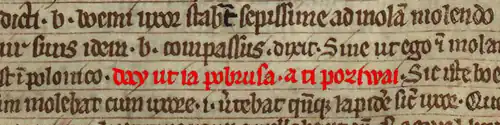 dicti · b · boemi uxor stabat̄ sepissime ad molā molendo
uir suus idem · b · compassus · dixit · Sine ut ego ī mola
st ī polonico · day ut ia pobrusa · a ti poziwai · Sic iste boe
m molebat cum uxore · i · u̅tebat qn̄qꝫ lapidē sic̄ uxor · Qu